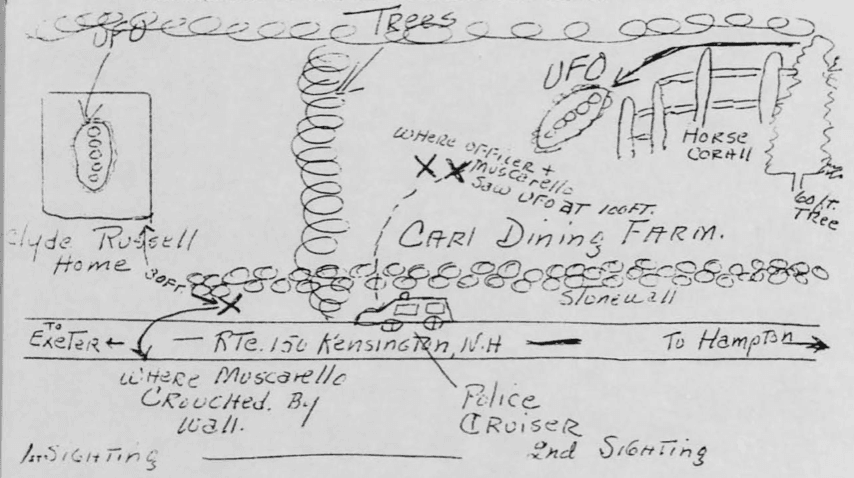 UFO
Trees
UFO
HORSE
CORAll
60ft.
Tree
WHERE OFFICER +
Muscarello
Saw UFO AT 100FT.
Clyde Russell
Home
30FT.
CARl Dining FARM.
Stonewall
TO
EXETER ←
RTE. 150 Kensington, N.H
To Hampton
WHERE Muscarello
CROUCHED. By
Wall.
Police
CRUISER
1st SIGHTING
2nd SIGHTING